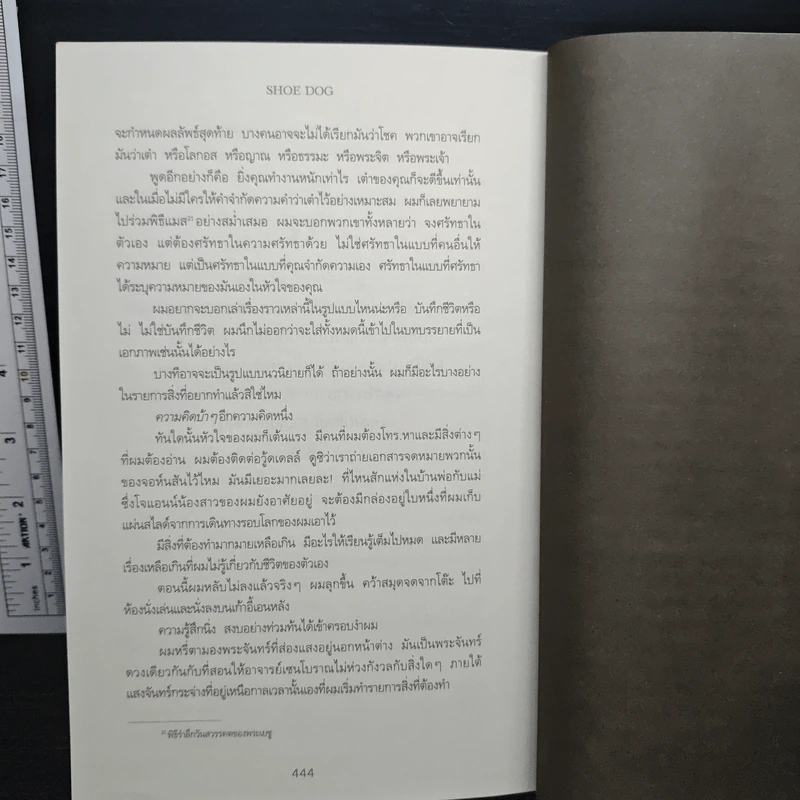 SHOE DOG
จะกำหนดผลลัพธ์สุดท้าย บางคนอาจจะไม่ได้เรียกมันว่าโชค พวกเขาอาจเรียก
มันว่าเต๋า หรือโลกอส หรือญาณ หรือธรรมะ หรือพระจิต หรือพระเจ้า
พูดอีกอย่างก็คือ ยิ่งคุณทำงานหนักเท่าไร เต๋าของคุณก็จะดีขึ้นเท่านั้น
และในเมื่อไม่มีใครให้คำจำกัดความคำว่าเต๋าไว้อย่างเหมาะสม ผมก็เลยพยายาม
ไปร่วมพิธีแมส²¹ อย่างสม่ำเสมอ ผมจะบอกพวกเขาทั้งหลายว่า จงศรัทธาใน
ตัวเอง แต่ต้องศรัทธาในความศรัทธาด้วย ไม่ใช่ศรัทธาในแบบที่คนอื่นให้
ความหมาย แต่เป็นศรัทธาในแบบที่คุณจำกัดความเอง ศรัทธาในแบบที่ศรัทธา
ได้ระบุความหมายของมันเองในหัวใจของคุณ
ผมอยากจะบอกเล่าเรื่องราวเหล่านี้ในรูปแบบไหนน่ะหรือ บันทึกชีวิตหรือ
ไม่ ไม่ใช่บันทึกชีวิต ผมนึกไม่ออกว่าจะใส่ทั้งหมดนี้เข้าไปในบทบรรยายที่เป็น
เอกภาพเช่นนั้นได้อย่างไร
บางทีอาจจะเป็นรูปแบบนวนิยายก็ได้ ถ้าอย่างนั้น ผมก็มีอะไรบางอย่าง
ในรายการสิ่งที่อยากทำแล้วสิใช่ไหม
ความคิดบ้าๆ อีกความคิดหนึ่ง
ทันใดนั้นหัวใจของผมก็เต้นแรง มีคนที่ผมต้องโทร.หาและมีสิ่งต่างๆ
ที่ผมต้องอ่าน ผมต้องติดต่อวู้ดเดลล์ ดูซิว่าเราถ่ายเอกสารจดหมายพวกนั้น
ของจอห์นสันไว้ไหม มันมีเยอะมากเลยละ! ที่ไหนสักแห่งในบ้านพ่อกับแม่
ซึ่งโจแอนน์น้องสาวของผมยังอาศัยอยู่ จะต้องมีกล่องอยู่ใบหนึ่งที่ผมเก็บ
แผ่นสไลด์จากการเดินทางรอบโลกของผมเอาไว้
มีสิ่งที่ต้องทำมากมายเหลือเกิน มีอะไรให้เรียนรู้เต็มไปหมด และมีหลาย
เรื่องเหลือเกินที่ผมไม่รู้เกี่ยวกับชีวิตของตัวเอง
ตอนนี้ผมหลับไม่ลงแล้วจริงๆ ผมลุกขึ้น คว้าสมุดจดจากโต๊ะ ไปที่
ห้องนั่งเล่นและนั่งลงบนเก้าอี้เอนหลัง
ความรู้สึกนิ่ง สงบอย่างท่วมท้นได้เข้าครอบงำผม
ผมหรี่ตามองพระจันทร์ที่ส่องแสงอยู่นอกหน้าต่าง มันเป็นพระจันทร์
ดวงเดียวกันกับที่สอนให้อาจารย์เซนโบราณไม่ห่วงกังวลกับสิ่งใดๆ ภายใต้
แสงจันทร์กระจ่างที่อยู่เหนือกาลเวลานั้นเองที่ผมเริ่มทำรายการสิ่งที่ต้องทำ
²¹ พิธีรำลึกวันสวรรคตของพระเยซู
444